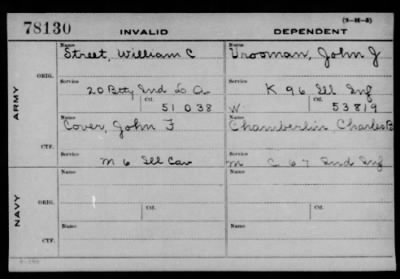 78130 INVALID DEPENDENT (3-H-5)
Name Name
Street, William C Vrooman, John J
ORIG. Service Service
20 Btty Ind L A K 96 Ill Inf
Ctf. Ctf.
51038 W 53819
ARMY
Name Name
Cover, John F Chamberlin Charles B
CTF. Service Service
M 6 Ill Cav M C 67 Ind Inf
Name Name
ORIG. Service Service
Ctf. Ctf.
NAVY
Name Name
CTF. Service Service